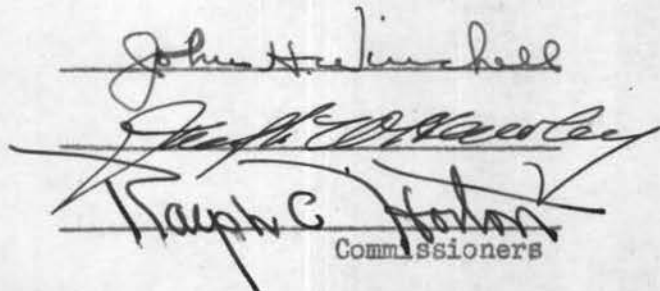 John H. Winchell
Joseph W. Hawley
Ralph C. Horton
Commissioners